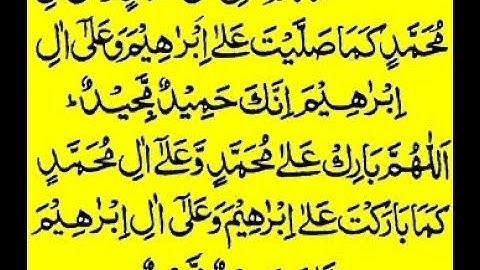 مُحَمَّدٍ كَمَا صَلَّيْتَ عَلٰى اِبْرٰهِيْمَ وَعَلٰٓى اٰلِ
اِبْرٰهِيْمَ اِنَّكَ حَمِيْدٌ مَّجِيْدٌ ؕ
اَللّٰهُمَّ بَارِكْ عَلٰى مُحَمَّدٍ وَّعَلٰٓى اٰلِ مُحَمَّدٍ
كَمَا بَارَكْتَ عَلٰٓى اِبْرٰهِيْمَ وَعَلٰٓى اٰلِ اِبْرٰهِيْمَ